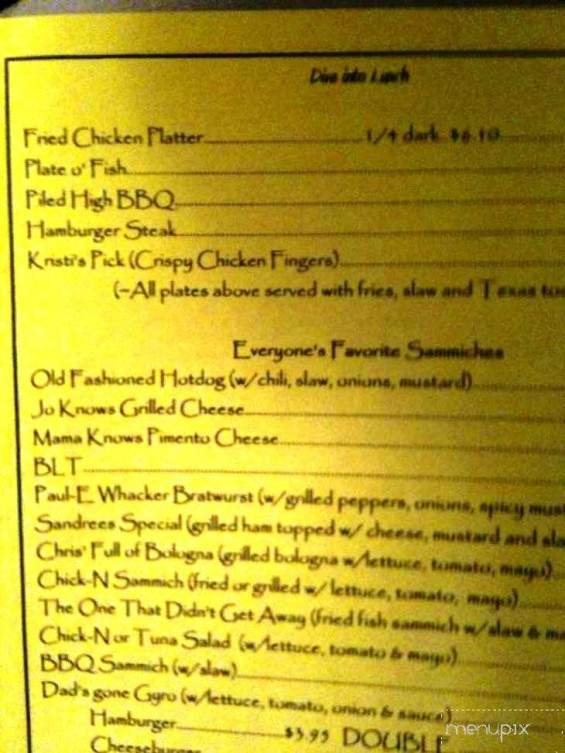 Dive into Lunch
Fried Chicken Platter 1/4 dark $6.10
Plate o' Fish
Piled High BBQ
Hamburger Steak
Kristi's Pick (Crispy Chicken Fingers)
(~All plates above served with fries, slaw and Texas
Everyone's Favorite Sammiches
Old Fashioned Hotdog (w/chili, slaw, onions, mustard)
Jo Knows Grilled Cheese
Mama Knows Pimento Cheese
BLT
Paul-E Whacker Bratwurst (w/grilled peppers, onions, spicy
Sandrees Special (grilled ham topped w/ cheese, mustard and
Chris' Full of Bologna (grilled bologna w/lettuce, tomato, mayo)
Chick-N Sammich (fried or grilled w/ lettuce, tomato, mayo)
The One That Didn't Get Away (fried fish sammich w/slaw &
Chick-N or Tuna Salad (w/lettuce, tomato & mayo)
BBQ Sammich (w/slaw)
Dad's gone Gyro (w/lettuce, tomato, onion & sauce)
Hamburger $3.95 DOUBLE
Cheeseburger
menupix